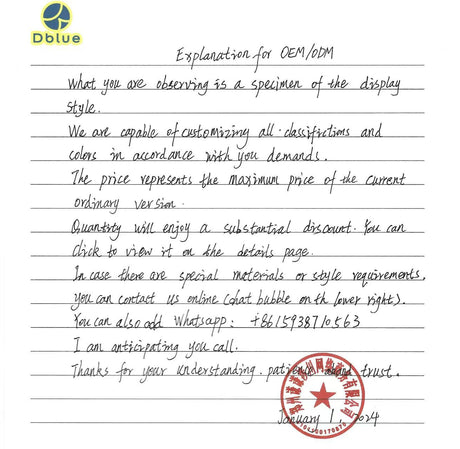 Dblue
Explanation for OEM/ODM
What you are observing is a specimen of the display
style.
We are capable of customizing all classifictions and
colors in accordance with you demands.
The price represents the maximum price of the current
ordinary version.
Quantity will enjoy a substantial discount. You can
click to view it on the details page.
In case there are special materials or style requirements,
you can contact us online (chat bubble on th lower right).
You can also add Whatsapp: +8615938710563
I am anticipating you call.
Thanks for your understanding. patience and trust.
January 1, 2024